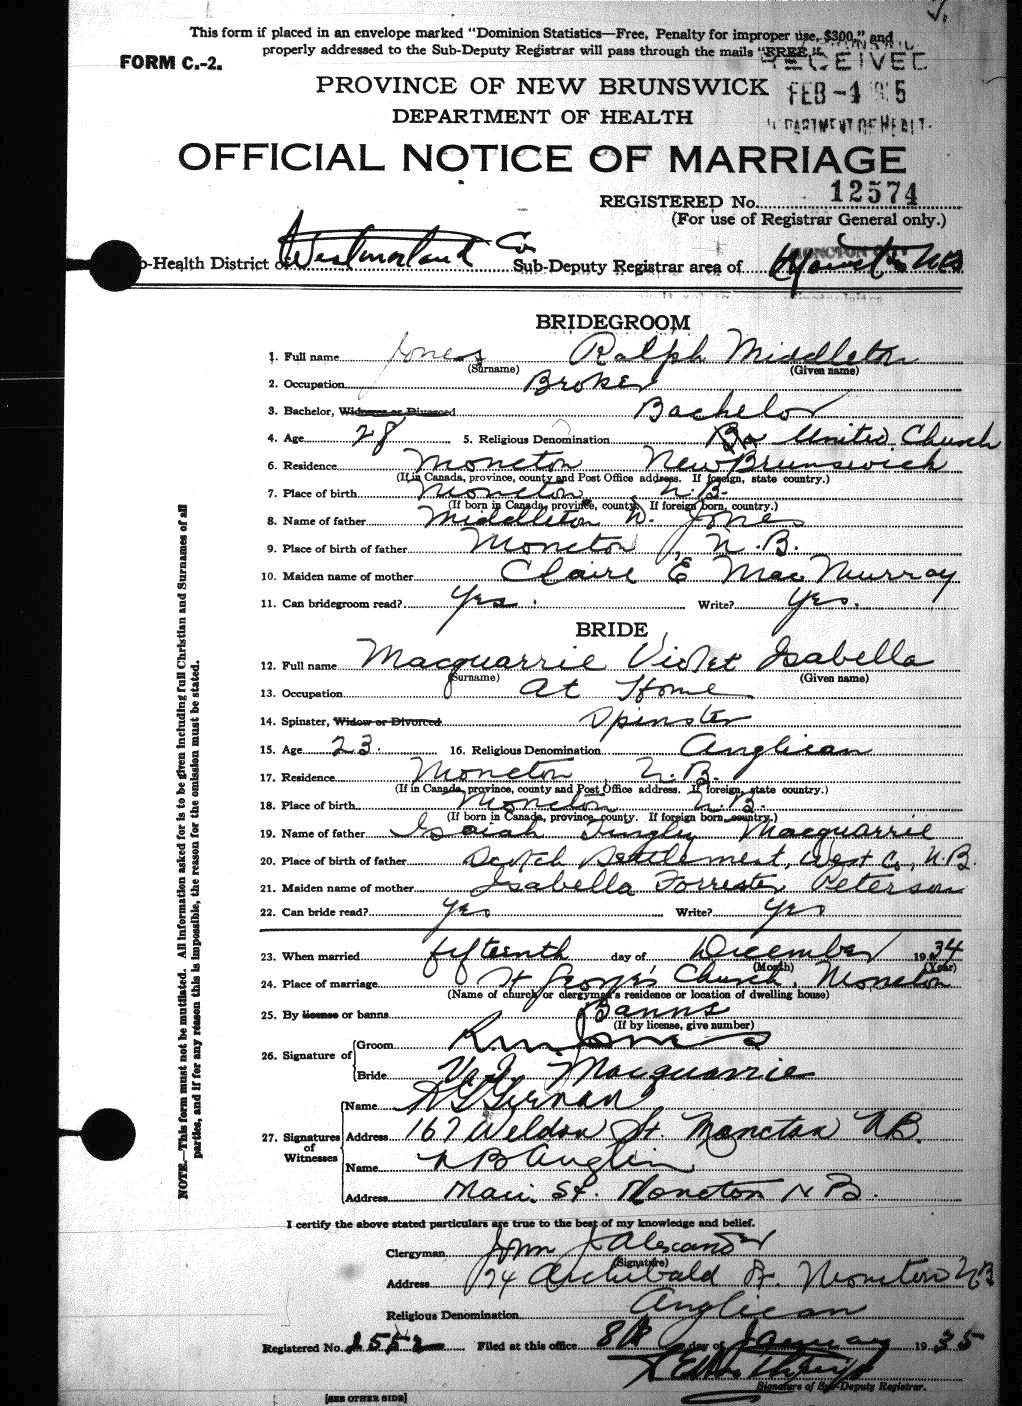 This form if placed in an envelope marked "Dominion Statistics—Free, Penalty for improper use, $300," and
properly addressed to the Sub-Deputy Registrar will pass through the mails "FREE."
FORM C.-2.
RECEIVED
PROVINCE OF NEW BRUNSWICK
FEB -4 1935
DEPARTMENT OF HEALTH
DEPARTMENT OF HEALT.
OFFICIAL NOTICE OF MARRIAGE
REGISTERED No. 12574
(For use of Registrar General only.)
b-Health District of Westmorland Co Sub-Deputy Registrar area of NB
BRIDEGROOM
1. Full name Jones Ralph Middleton
(Surname) (Given name)
2. Occupation Broker
3. Bachelor, Widower or Divorced Bachelor
4. Age 28 5. Religious Denomination United Church
6. Residence Moncton New Brunswick
(If in Canada, province, county and Post Office address. If foreign, state country.)
7. Place of birth Moncton N.B.
(If born in Canada, province, county. If foreign born, country.)
8. Name of father Middleton W. Jones
9. Place of birth of father Moncton, N.B.
10. Maiden name of mother Claire E MacMurray
11. Can bridegroom read? Yes. Write? Yes.
BRIDE
12. Full name Macquarrie Violet Isabella
(Surname) (Given name)
13. Occupation At Home
14. Spinster, Widow or Divorced Spinster
15. Age 23. 16. Religious Denomination Anglican
17. Residence Moncton, N.B.
(If in Canada, province, county and Post Office address. If foreign, state country.)
18. Place of birth Moncton N.B.
(If born in Canada, province, county. If foreign born, country.)
19. Name of father Isaiah Tingley Macquarrie
20. Place of birth of father Scotch Settlement, West Co, N.B.
21. Maiden name of mother Isabella Forrester Peterson
22. Can bride read? yes Write? yes
23. When married fifteenth day of December 1934
(Month) (Year)
24. Place of marriage St George's Church, Moncton
(Name of church or clergyman's residence or location of dwelling house)
25. By license or banns Banns
(If by license, give number)
26. Signature of Groom R. M. Jones
Bride V. I. Macquarrie
27. Signatures of Witnesses
Name
Address 167 Weldon St. Moncton NB.
Name Anglin
Address Main St. Moncton N B.
I certify the above stated particulars are true to the best of my knowledge and belief.
Clergyman John J Alexander
(Signature)
Address 24 Archibald St. Moncton NB
Religious Denomination Anglican
Registered No. 2552 Filed at this office 8th day of January 1935
Signature of Sub-Deputy Registrar.
[SEE OTHER SIDE]
NOTE.—This form must not be mutilated. All information asked for is to be given including full Christian and Surnames of all
parties, and if for any reason this is impossible, the reason for the omission must be stated.